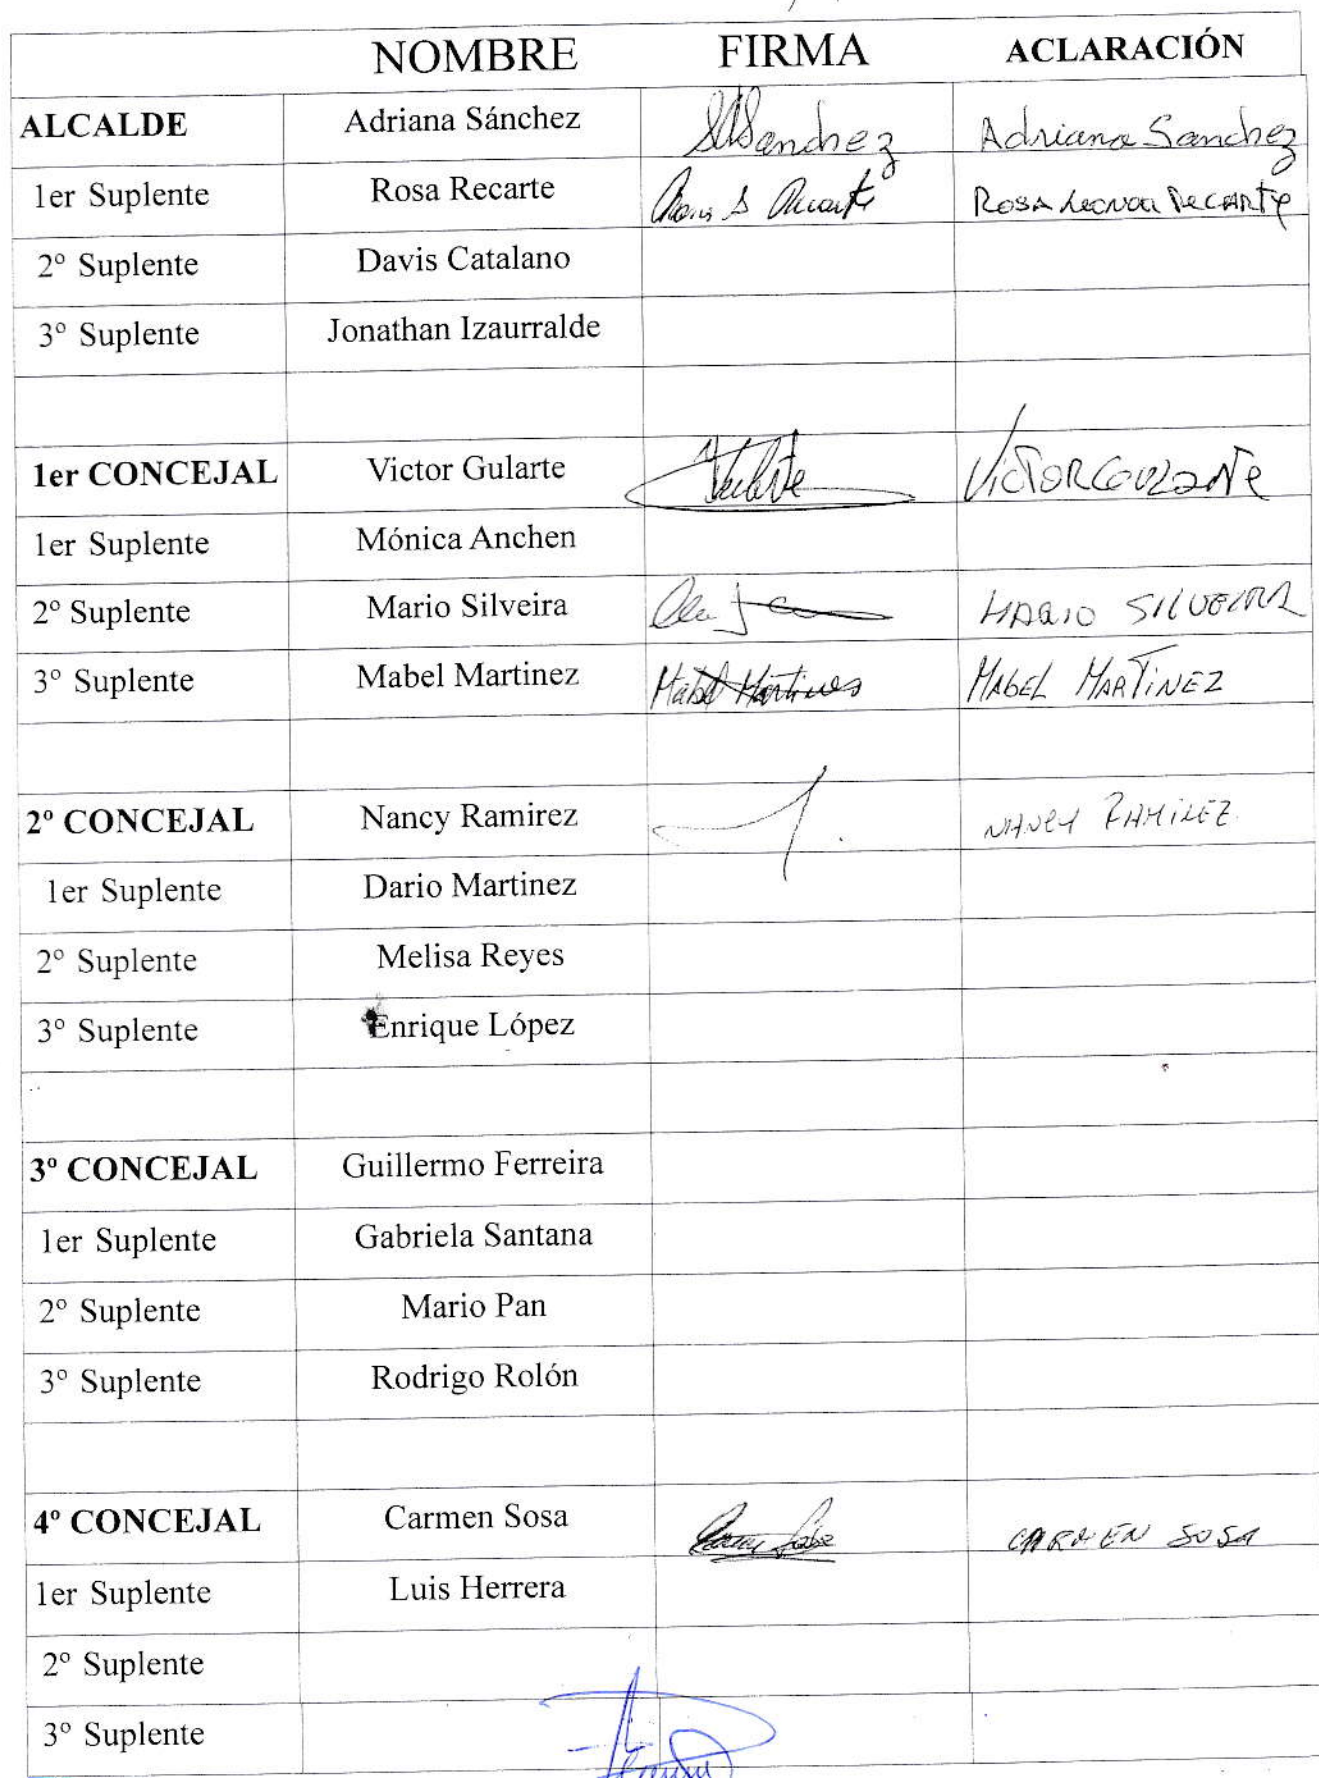 NOMBRE FIRMA ACLARACIÓN
ALCALDE Adriana Sánchez Sanchez Adriana Sanchez
1er Suplente Rosa Recarte Rosa Leonor Recarte
2º Suplente Davis Catalano
3º Suplente Jonathan Izaurralde
1er CONCEJAL Victor Gularte Victor Gularte
1er Suplente Mónica Anchen
2º Suplente Mario Silveira MARIO SILVEIRA
3º Suplente Mabel Martinez Mabel Martines MABEL MARTINEZ
2º CONCEJAL Nancy Ramirez NANCY RAMIREZ
1er Suplente Dario Martinez
2º Suplente Melisa Reyes
3º Suplente Enrique López
3º CONCEJAL Guillermo Ferreira
1er Suplente Gabriela Santana
2º Suplente Mario Pan
3º Suplente Rodrigo Rolón
4º CONCEJAL Carmen Sosa Carmen Sosa CARMEN SOSA
1er Suplente Luis Herrera
2º Suplente
3º Suplente